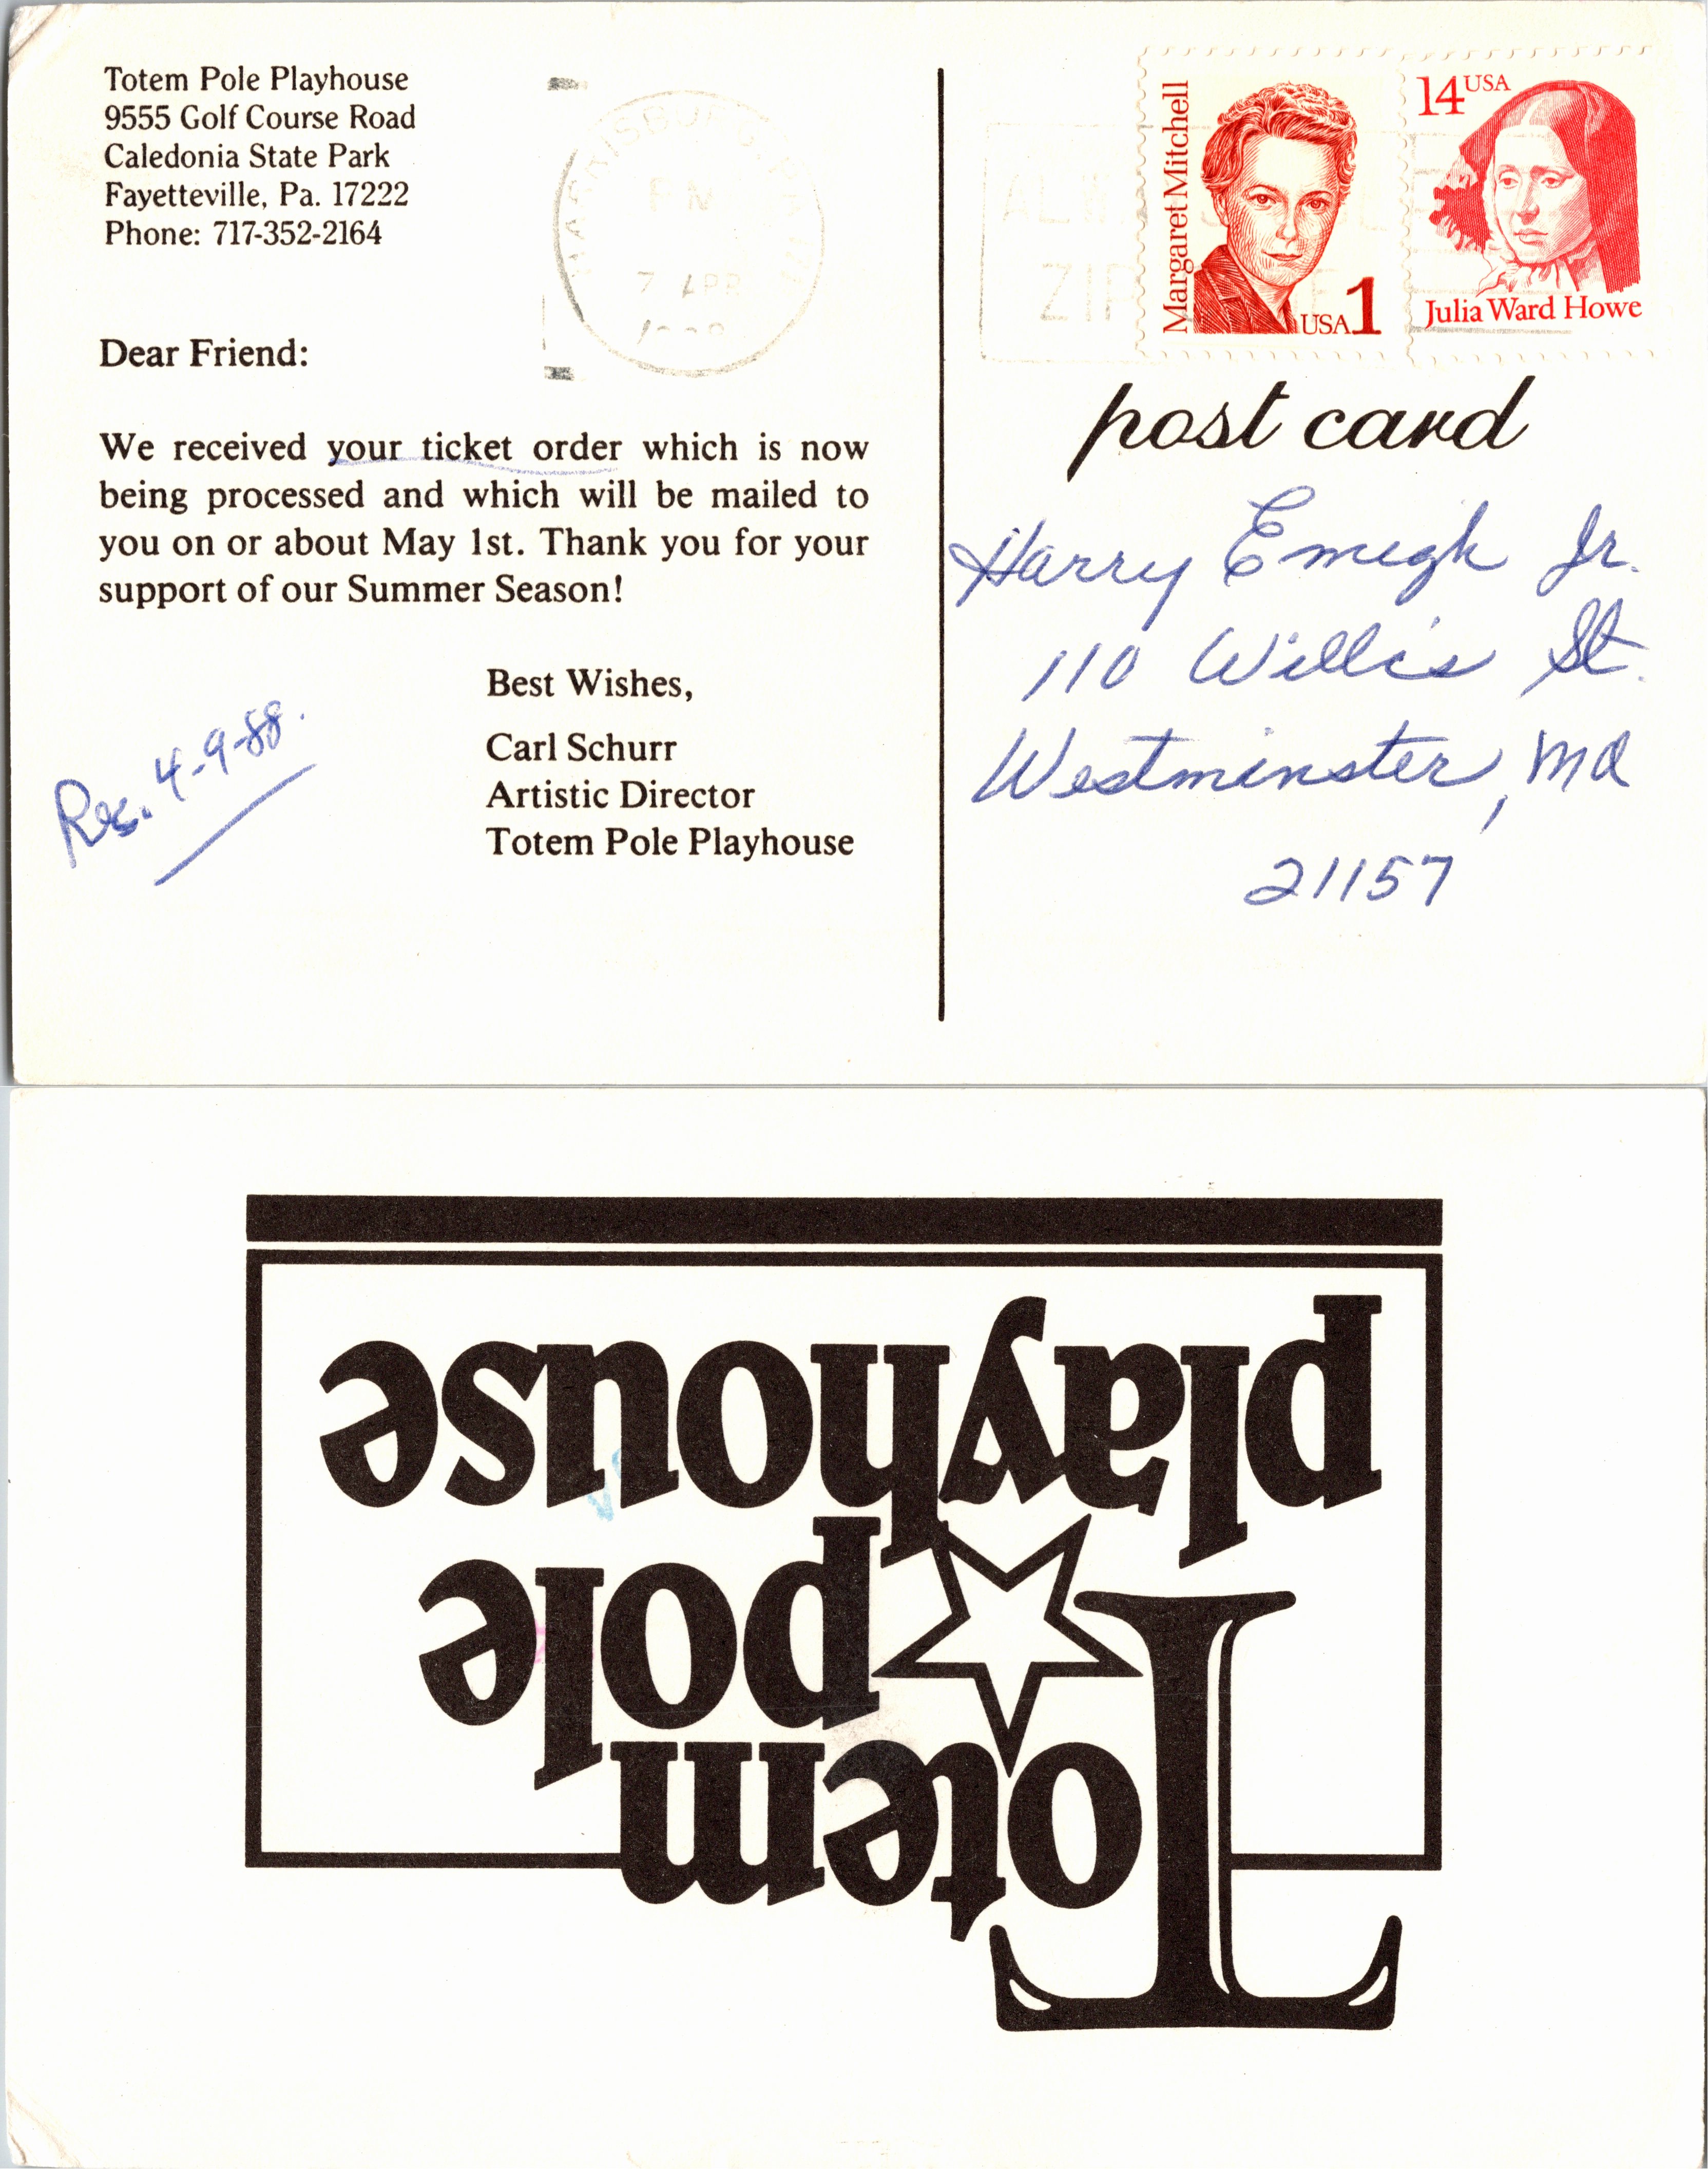 Totem Pole Playhouse
9555 Golf Course Road
Caledonia State Park
Fayetteville, Pa. 17222
Phone: 717-352-2164
HARRISBURG, PA
PM
7 APR
1988
Margaret Mitchell
USA 1
14 USA
Julia Ward Howe
Dear Friend:
We received your ticket order which is now
being processed and which will be mailed to
you on or about May 1st. Thank you for your
support of our Summer Season!
Best Wishes,
Carl Schurr
Artistic Director
Totem Pole Playhouse
Rec. 4-9-88.
post card
Harry Emigh Jr.
110 Willis St.
Westminster, Md
21157
Totem
pole
playhouse